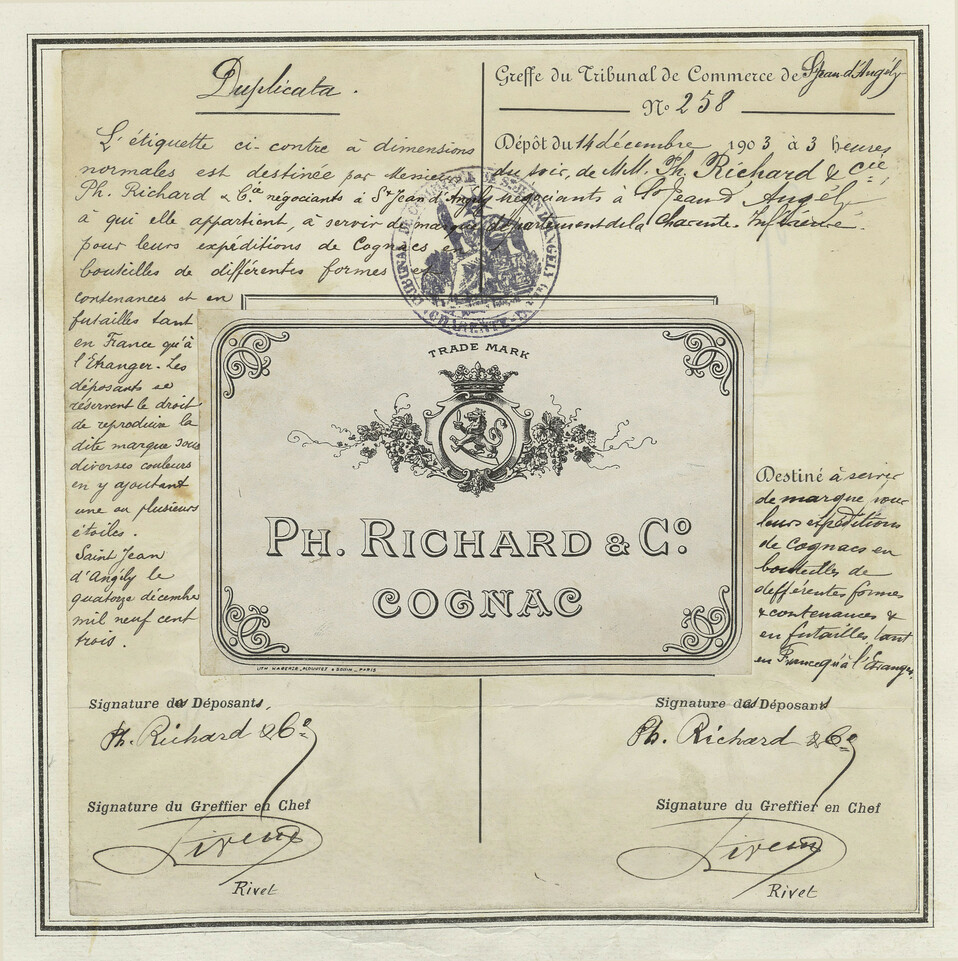 Duplicata.
L'étiquette ci-contre à dimensions
normales est destinée par
Ph. Richard & Cie négociants à St Jean d'Angély
à qui elle appartient, à servir de marque
pour leurs expéditions de Cognacs en
bouteilles de différentes formes et
contenances et en
futailles tant
en France qu'à
l'Etranger. Les
déposants se
réservent le droit
de reproduire la
dite marque sous
diverses couleurs
en y ajoutant
une ou plusieurs
étoiles.
Saint Jean
d'Angély le
quatorze décembre
mil neuf cent
trois.
Signature des Déposants,
Ph. Richard & Co
Signature du Greffier en Chef
Rivet
Rivet
Greffe du Tribunal de Commerce de St Jean d'Angély
No 258
Dépôt du 14 décembre 1903 à 3 heures
du soir, de MM. Ph. Richard & Cie,
négociants à St Jean d'Angély
département de la Charente Inférieure.
TRADE MARK
PH. RICHARD & Co.
COGNAC
PARIS
Destiné à servir
de marque pour
leurs expéditions
de Cognacs en
bouteilles de
différentes formes
& contenances &
en futailles, tant
en France qu'à l'Etranger.
Signature des Déposants
Ph. Richard & Co
Signature du Greffier en Chef
Rivet
Rivet